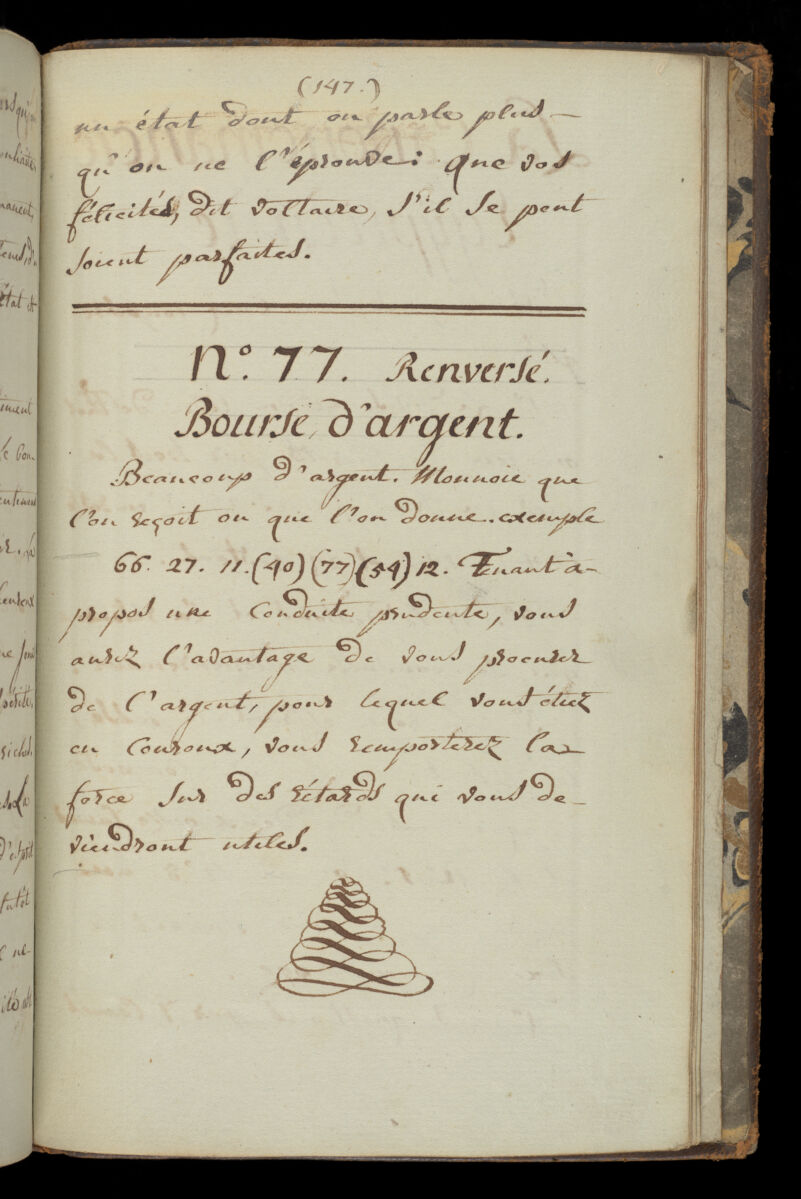 (147.)
un état dont on parle plus -
qu'on ne l'éprouve: que vos
félicités, dit voltaire, s'il se peut
soient parfaites.
N.º 77. Renversé.
Bourse d'argent.
Beaucoup d'argent. Monnoie que
l'on reçoit ou que l'on donne. exemple
66. 27. 11. (40) (77) (54) 12. Tenant à-
propos une Conduite prudente, vous
aurez l'avantage de vous procurer
de l'argent, pour lequel vous étiez
en Couroux, vous remporterez la
force sur des rétards qui vous de-
viendront utiles.